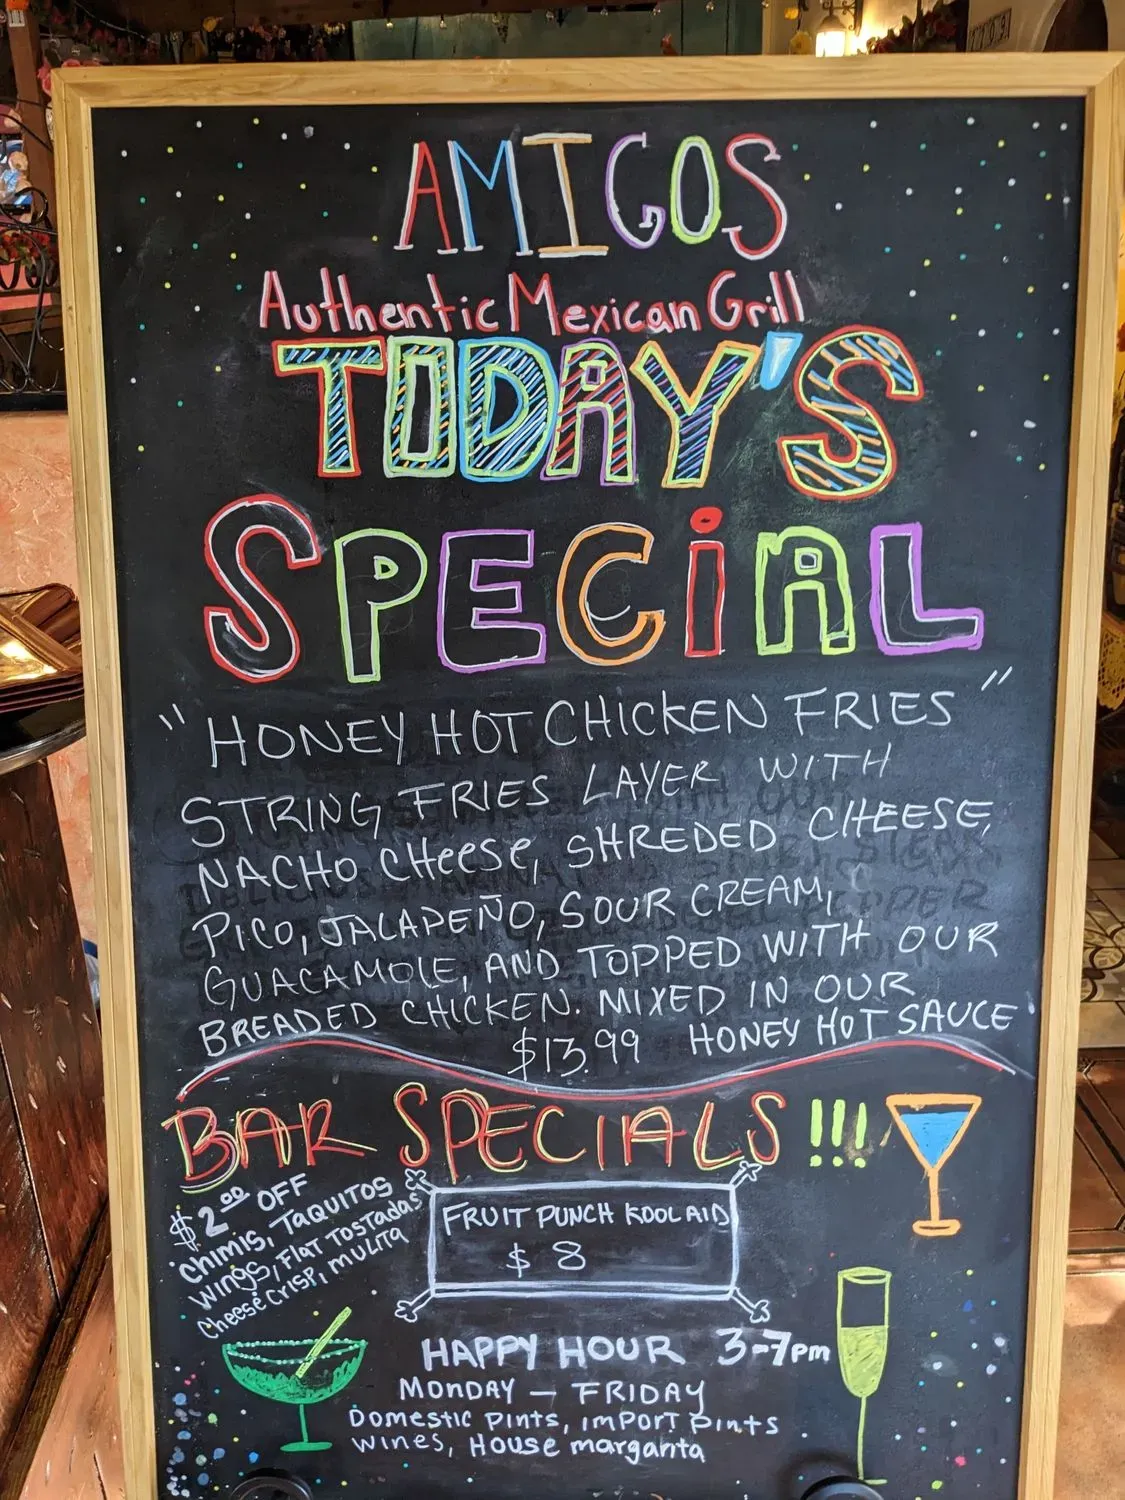 AMIGOS
Authentic Mexican Grill
TODAY'S
SPECiAL
"HONEY HOT CHICKEN FRIES"
STRING FRIES LAYER WITH
NACHO CHeese, SHREDED CHEESE,
PICO, JALAPEÑO, SOUR CREAM,
GUACAMOLE, AND TOPPED WITH OUR
BREADED CHICKEN. MIXED IN OUR
$13.99 HONEY HOT SAUCE
BAR SPECIALS!!!
$2.00 OFF
Chimis, TAQUITOS
Wings, FlAT TOSTADAS
Cheese CRISP, MULITA
FRUIT PUNCH KOOLAID
$8
HAPPY HOUR 3-7pm
MONDAY - FRIDAY
DOMESTIC PINTS, IMPORT PINTS
WINES, HOUSE margarita